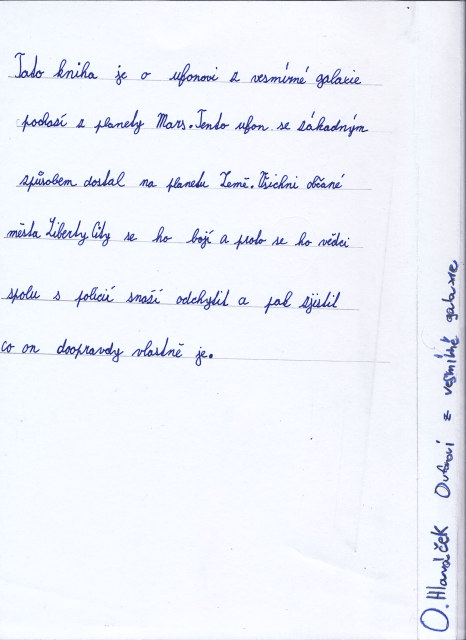 Tato kniha je o ufonovi z vesmírné galaxie
pochasí z planety Mars. Tento ufon se záhadným
způsobem dostal na planetu Země. Všichni občané
města Liberty City se ho bojí a proto se ho vědci
spolu s policií snaží odchytit a pak zjistit
co on doopravdy vlastně je.
O. Hlaváček Oufonovi z vesmírné galaxie